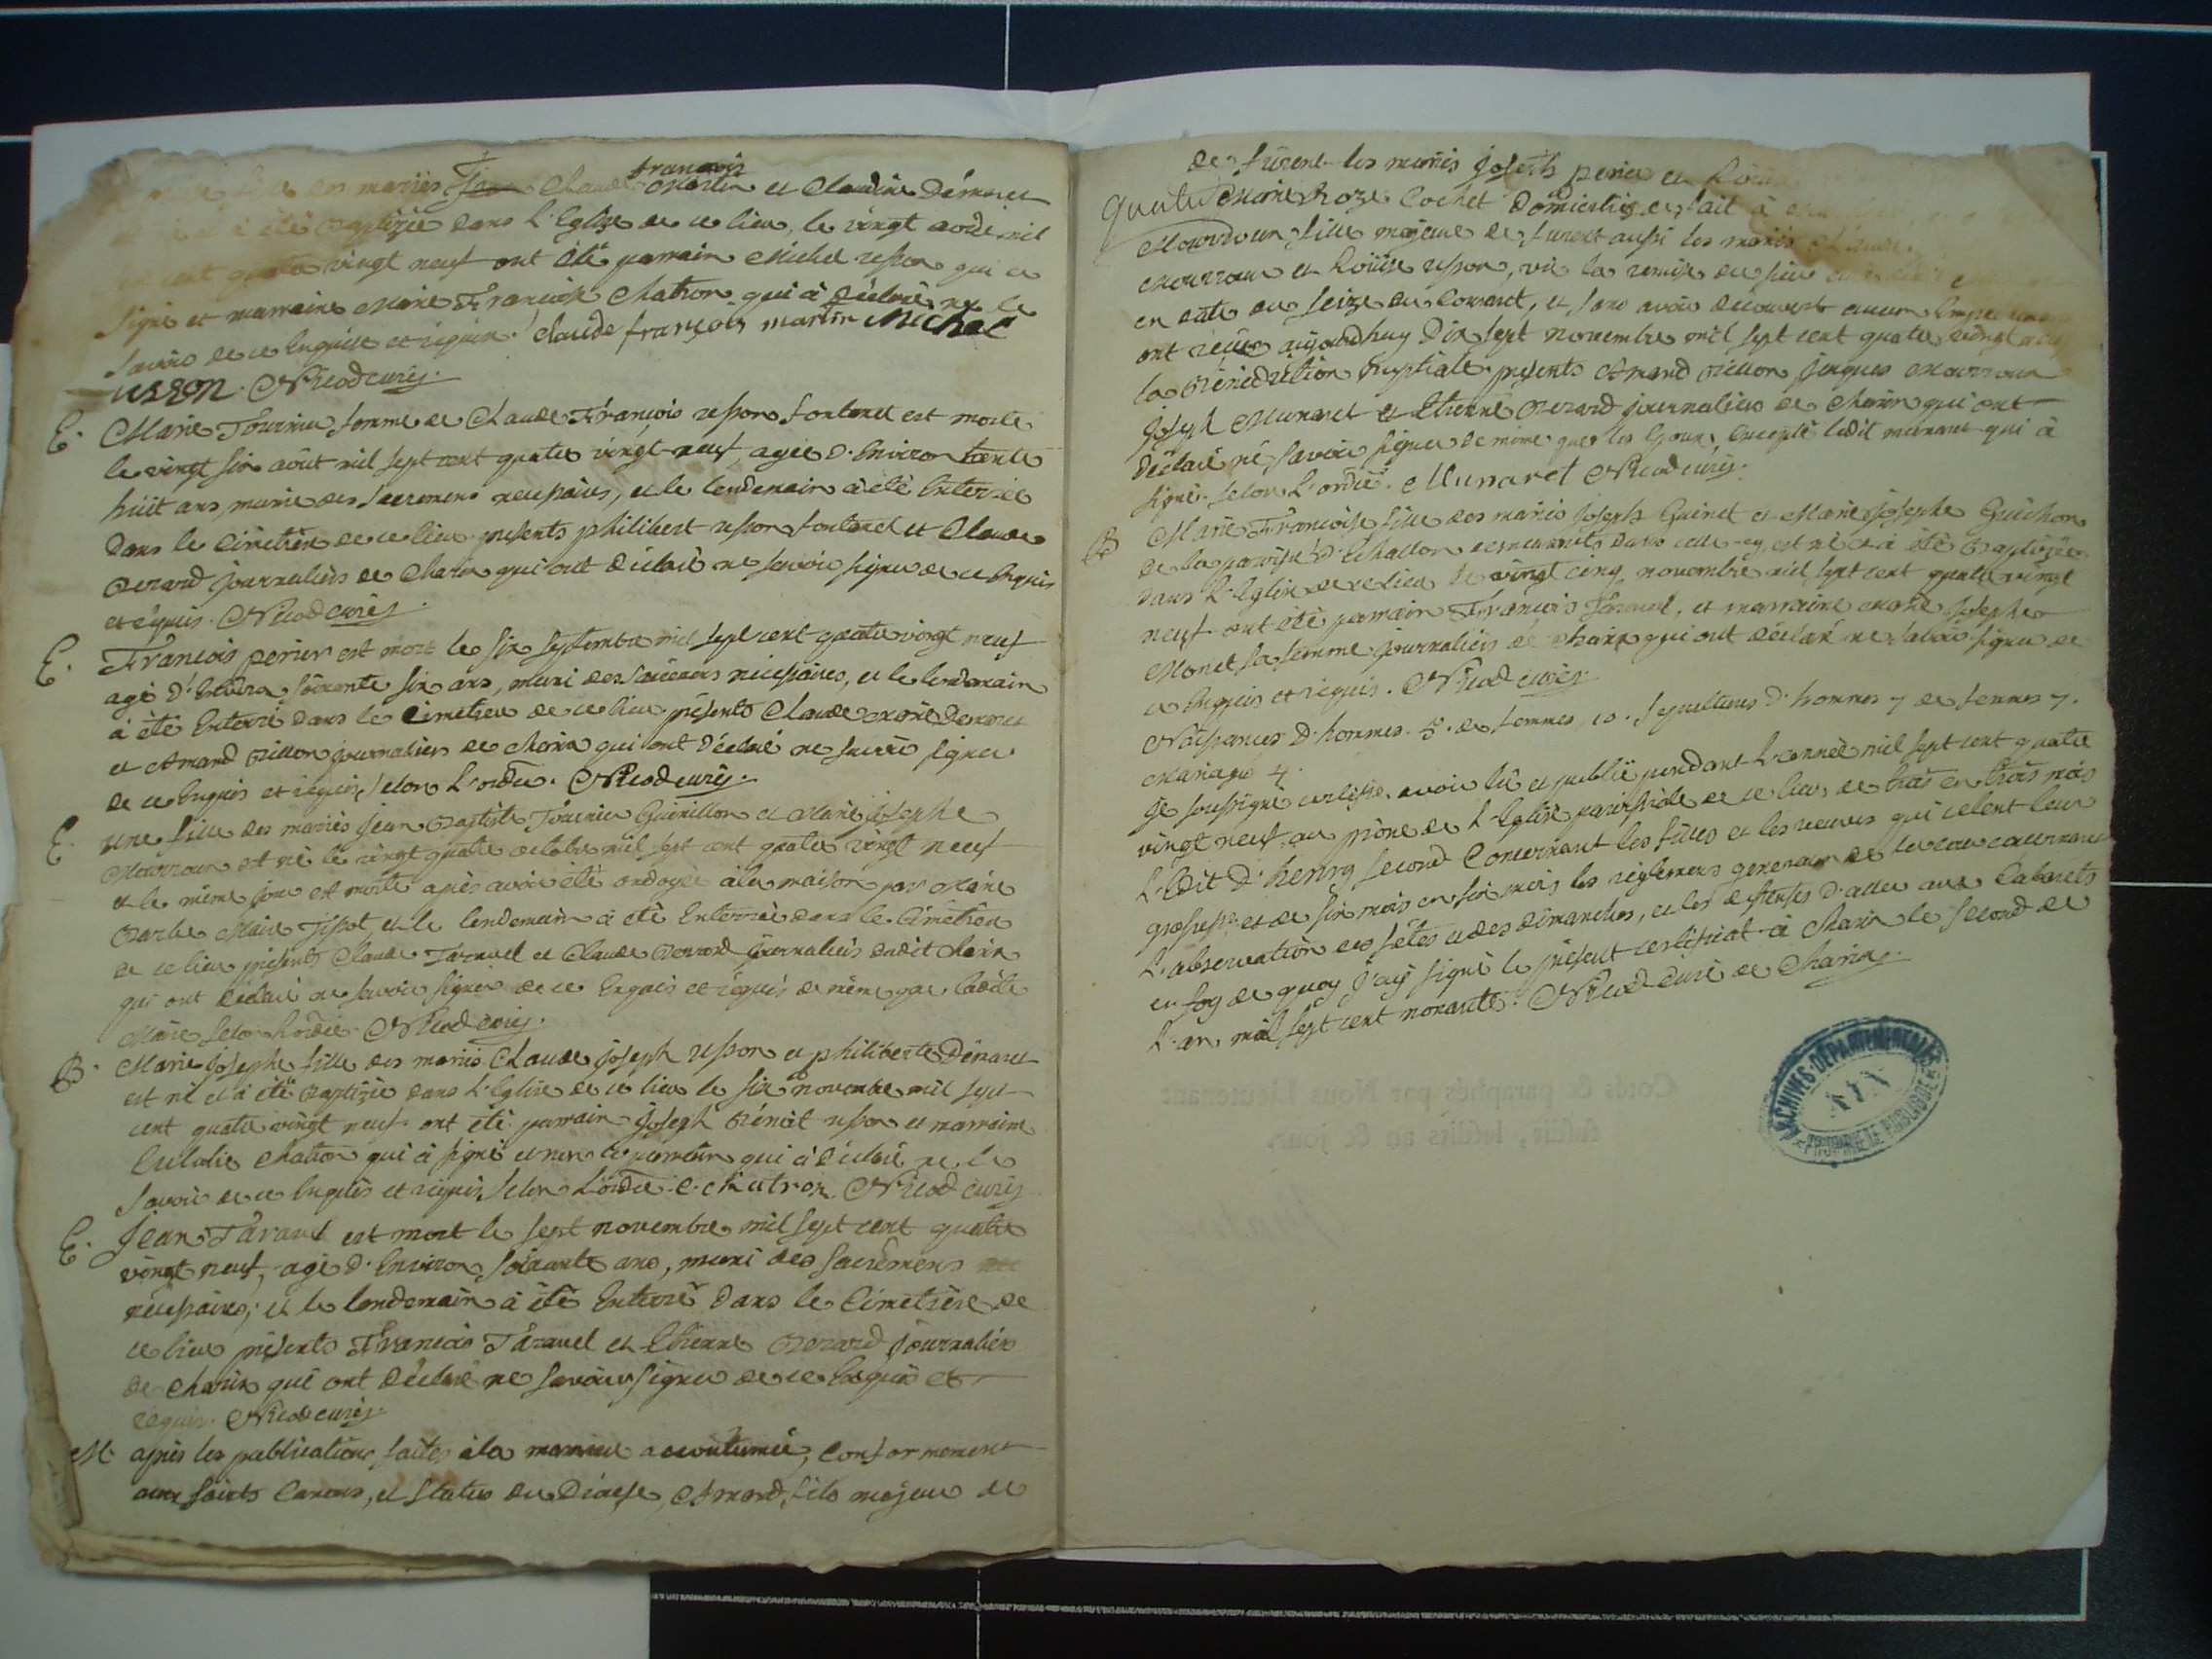 fille des mariés Claude françois Martin et Claudine Démaret
à été Baptizée dans L'Eglize de ce lieu, le vingt août mil
cent quatre vingt neuf ont été parrain Michel usson qui a
signé et marraine Marie Françoise Chatron qui à déclaré ne le
savoir de ce Enquise et requise. Claude françois martin Michel
usson. Nicod curé.
E. Marie Tournier femme de Claude François usson fontanel est morte
le vingt six août mil sept cent quatre vingt neuf, agée d'Environ trente
huit ans, munie des sacremens necessaires, et le lendemain à été Enterrée
dans le Cimetière de ce lieu presents philibert usson fontanel et Claude
Berard journaliers de Charix qui ont déclaré ne savoir signer de ce Enquis
et requis. Nicod curé.
E. François perier est mort le six septembre mil sept cent quatre vingt neuf
agé d'Environ soixante six ans, muni des sacremens nécessaires, et le lendemain
à été Enterré dans le Cimetiere de ce lieu présents Claude Demaret
et Amand Billion journaliers de Charix qui ont déclaré ne savoir signer
de ce Enquis et requis, selon L'ordce. Nicod curé.
E. une fille des mariés Jean Baptiste Tournier Guinillon et Marie josephe
Mourroux est né le vingt quatre octobre mil sept cent quatre vingt neuf
et le même jour est morte après avoir été ondoyée à la maison par Marie
Barbe Marie Tissot, et le lendemain à été Enterrée dans le Cimetière
de ce lieu présents Claude Taravel et Claude Berrard journaliers dudit Charix
qui ont déclaré ne savoir signer de ce Enquis et requis de même que ladite
Marie selon Lordce. Nicod curé.
B. Marie Josephe fille des mariés Claude joseph usson et philiberte Démaret
est né et à été Baptizée dans L'Eglise de ce lieu le six novembre mil sept
cent quatre vingt neuf ont été parrain Joseph Bénoit usson et marraine
Eulalie Chatron qui à signé et non le parrain qui à déclaré ne le
savoir de ce Enquis et requis, selon Lordce. e. chatron. Nicod curé
E. Jean Taravel est mort le sept novembre mil sept cent quatre
vingt neuf, agé d'Environ soixante ans, muni des sacremens
nécessaires, et le lendemain à été Enterré dans le Cimetière de
ce lieu présents François Taravel et Etienne Berard Journaliers
de Charix qui ont déclaré ne savoir signer de ce Enquis et
requis. Nicod curé.
M. après les publications faites à la manière accoutumée, Conformement
aux saints Canons, et statuts du Diocese, Amand, fils majeur de
de furent les mariés Joseph perier et
Marie Roze Cochet Domestique, fait à
Mourroux fille majeure de furent aussi les mariés
Mourroux et Loüise usson, vû la remise
en date du seize du Courant, et sans avoir découvert aucun
ont reçu aujourdhuy dix sept novembre mil sept cent quatre vingt neuf
la Bénédiction Nuptiale. présents Amand Billion Jacques Mourroux
joseph Munaret et Etienne Berard journaliers de Charix qui ont
déclaré ne savoir signer de même que les Epoux, Excepté ledit munaret qui à
signé. selon L'ordce. Munaret Nicod curé.
B Marie Françoise fille des mariés joseph Guinet et Marie josephe Guichon
de la paroisse d'Echallon demeurants dans celle-cy, est né et à été Baptizée
dans L'Eglise de ce lieu le vingt cinq novembre mil sept cent quatre vingt
neuf ont été parrain François Taravel, et marraine Marie Josephe
Monet sa femme journaliers de Charix qui ont déclaré ne savoir signer de
ce Enquis et requis. Nicod curé.
Naissances d'hommes. 5. de femmes. 10. Sepultures d'hommes 7 de femmes 7.
Mariages 4.
Je soussigné certifie, avoir lû et publié pendant L'année mil sept cent quatre
vingt neuf au prône de L'Eglise paroissiale de ce lieu, de trois en trois mois
L'Edit d'henry second Concernant les filles et les veuves qui celent leur
grossesse et de six mois en six mois les reglemens generaux de la cour concernant
L'observation des fêtes et des dimanches, et les deffenses d'aller aux Cabarets
en foy de quoy j'ay signé le présent certificat à Charix le second de
L'an mil sept cent nonante. Nicod Curé de Charix.
ARCHIVES DEPARTEMENTALES
AIN
PROPRIETE PUBLIQUE